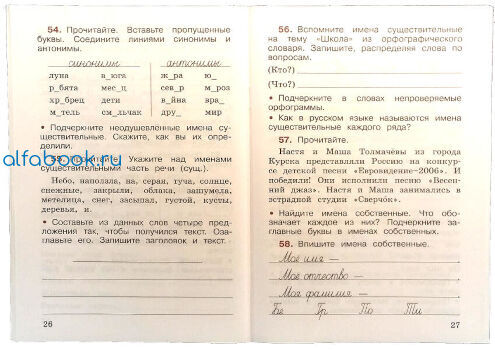 54. Прочитайте. Вставьте пропущенные
буквы. Соедините линиями синонимы и
антонимы.
синонимы антонимы
луна в_юга ж_ра ю_
р_бята мес_ц сев_р м_роз
хр_брец дети в_йна вра_
м_тель см_льчак дру_ мир
• Подчеркните неодушевлённые имена су-
ществительные. Скажите, как вы их опре-
делили.
alfabook.ru
55. Прочитайте. Укажите над именами
существительными части речи (сущ.).
Небо, наползала, на, серая, туча, солнце,
снежные, закрыли, облака, зашумела,
метелица, снег, засыпал, густой, кусты,
деревья, и.
• Составьте из данных слов четыре пред-
ложения так, чтобы получился текст. Оза-
главьте его. Запишите заголовок и текст.
26
56. Вспомните имена существительные
на тему «Школа» из орфографического
словаря. Запишите, распределяя слова по
вопросам.
(Кто?)
(Что?)
• Подчеркните в словах непроверяемые
орфограммы.
• Как в русском языке называются имена
существительные каждого ряда?
57. Прочитайте.
Настя и Маша Толмачёвы из города
Курска представляли Россию на конкур-
се детской песни «Евровидение—2006». И
победили! Они исполнили песню «Весен-
ний джаз». Настя и Маша занимались в
эстрадной студии «Сверчок».
• Найдите имена собственные. Что обо-
значает каждое из них? Подчеркните за-
главные буквы в именах собственных.
58. Впишите имена собственные.
Моё имя —
Моё отчество —
Моя фамилия —
Бе Гр По Ти
27